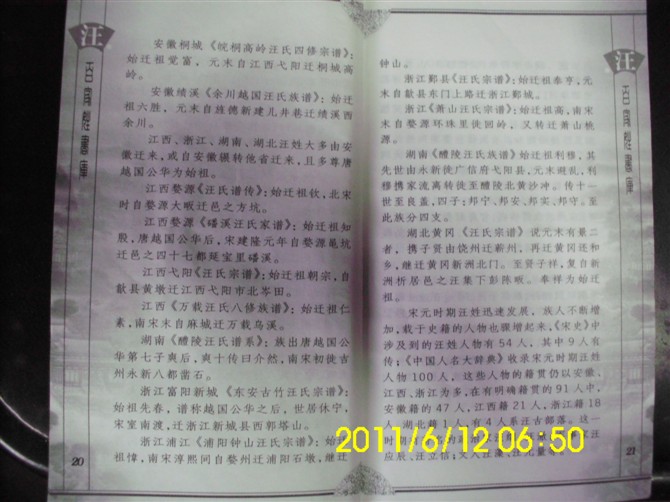 汪
安徽桐城《皖桐高岭汪氏四修宗谱》：
始迁祖觉富，元末自江西弋阳迁桐城高
岭。
安徽绩溪《余川越国汪氏族谱》：始迁
祖六胜，元末自旌德新建儿井巷迁绩溪西
余川。
江西、浙江、湖南、湖北汪姓大多由安
徽迁来，或自安徽辗转他省迁来，且多尊唐
越国公华为始祖。
江西婺源《汪氏谱传》：始迁祖钦，北宋
时自婺源大畈迁邑之方坑。
江西婺源《磻溪汪氏家谱》：始迁祖知
殷，唐越国公华后，宋建隆元年自婺源黾坑
迁邑之四十七都延宝里磻溪。
江西弋阳《汪氏宗谱》：始迁祖朝宗，自
歙县黄墩迁江西弋阳市北岑田。
江西《万载汪氏八修族谱》：始迁祖仁
素，南宋末自麻城迁万载乌溪。
湖南《醴陵汪氏谱系》：族出唐越国公
华第七子爽后，爽十传曰介然，南宋初徙吉
州永新八都凿石。
浙江富阳新城《东安古竹汪氏宗谱》：
始祖先春，谱称越国公华之后，世居休宁，
宋室南渡，迁浙江新城县西郭塔山。
浙江浦江《浦阳钟山汪氏宗谱》：始迁
祖愇，南宋淳熙间自婺州迁浦阳石墩，继迁
20
汪
钟山。
浙江鄞县《汪氏宗谱》：始迁祖泰亨，元
末自歙县东门上路迁浙江鄞城。
浙江《萧山汪氏宗谱》：始迁祖高，南宋
末自婺源环珠里徙回岭，又转迁萧山桃
源。
湖南《醴陵汪氏族谱》始迁祖利穆，其
先世由水新徙广信府弋阳县，元末避乱，利
穆携家流离转徙至醴陵北黄沙冲。传十一
世至良盖，四子：邦宁、邦安、邦实、邦守。至
此族分四支。
湖北黄冈《汪氏宗谱》说元末有曩二
者，携子贤由饶州迁蕲州，再迁黄冈还和
乡，继迁黄冈新洲北门。至贤子祥，复自新
洲析居邑之汪集下彭陈畈。奉祥为始迁
祖。
宋元时期汪姓迅速发展，族人不断增
加，载于史籍的人物也骤增起来，《宋史》中
涉及到的汪姓人物有54人，其中9人有
传；《中国人名大辞典》收录宋元时期汪姓
人物100人，这些人物的籍贯仍以安徽、
江西、浙江为多，在有明确籍贯的91人中，
安徽籍的47人，江西籍21人，浙江籍18
人，湖北籍1人，有4人系汪古部落。这一
应辰、汪立信；文人汪藻、汪元量等。
21
2011/6/12 06:50